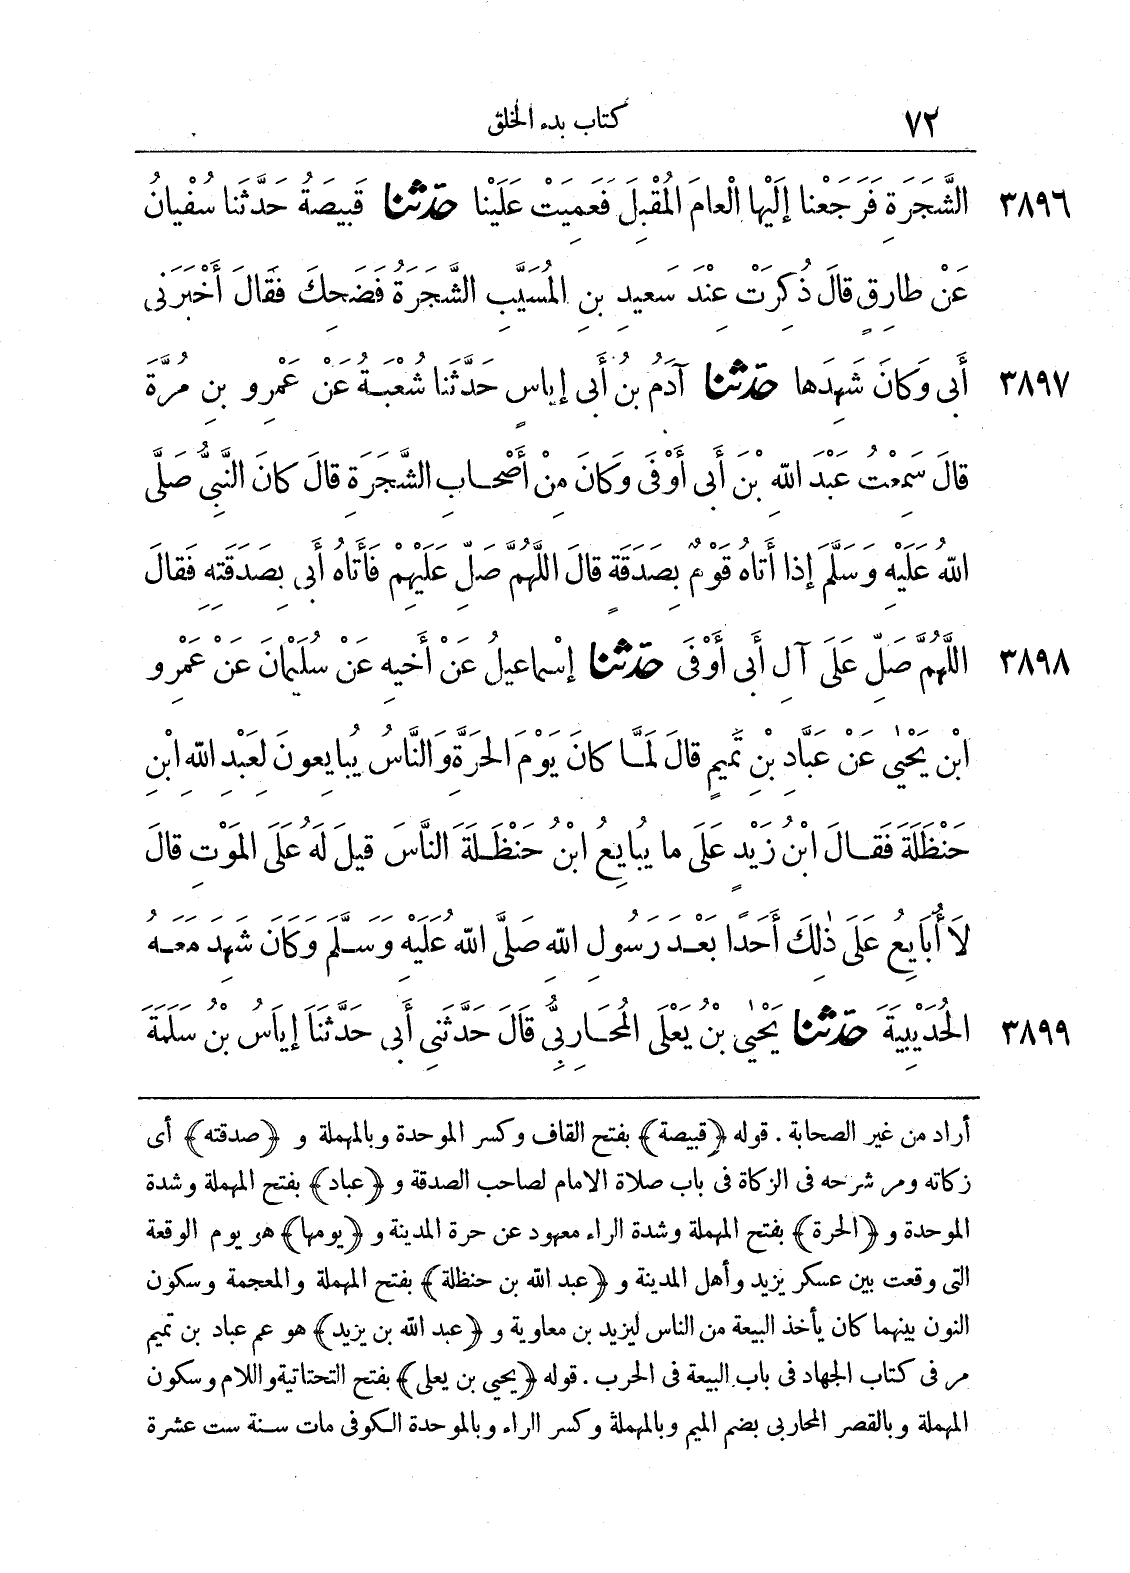 ٧٢ كتاب بدء الخلق
٣٨٩٦ الشَّجَرَةِ فَرَجَعْنا إِلَيْها الْعامَ المُقْبِلَ فَعَمِيَتْ عَلَيْنا حدّثنا قَبِيصَةُ حَدَّثَنا سُفْيانُ
عَنْ طارِقٍ قالَ ذُكِرَتْ عِنْدَ سَعِيدِ بنِ المُسَيَّبِ الشَّجَرَةُ فَضَحِكَ فَقالَ أَخْبَرَنِى
٣٨٩٧ أَبِى وَكانَ شَهِدَها حدّثنا آدَمُ بنُ أَبى إِياسٍ حَدَّثَنا شُعْبَةُ عَنْ عَمْرِو بنِ مُرَّةَ
قالَ سَمِعْتُ عَبْدَ اللهِ بْنَ أَبى أَوْفَى وَكانَ مِنْ أَصْحابِ الشَّجَرَةِ قالَ كانَ النَّبِىُّ صَلَّى
اللهُ عَلَيْهِ وَسَلَّمَ إذا أَتاهُ قَوْمٌ بِصَدَقَةٍ قالَ اللَّهُمَّ صَلِّ عَلَيْهِمْ فَأَتاهُ أَبى بِصَدَقَتِهِ فَقالَ
٣٨٩٨ اللَّهُمَّ صَلِّ عَلَى آلِ أَبى أَوْفَى حدّثنا إسْماعِيلُ عَنْ أَخِيهِ عَنْ سُلَيْمانَ عَنْ عَمْرِو
ابْنِ يَحْيٰى عَنْ عَبَّادِ بْنِ تَمِيمٍ قالَ لَمَّا كانَ يَوْمَ الحَرَّةِ وَالنَّاسُ يُبايِعونَ لِعَبْدِ اللهِ ابْنِ
حَنْظَلَةَ فَقالَ ابْنُ زَيْدٍ عَلَى ما يُبايِعُ ابْنُ حَنْظَلَةَ النَّاسَ قِيلَ لَهُ عَلَى المَوْتِ قالَ
لاَ أُبَايِعُ عَلَى ذٰلِكَ أَحَدًا بَعْدَ رَسُولِ اللهِ صَلَّى اللهُ عَلَيْهِ وَسَلَّمَ وَكَانَ شَهِدَ مَعَهُ
٣٨٩٩ الحُدَيْبِيَةَ حدّثنا يَحْيٰى بْنُ يَعْلَى المُحَارِبِىُّ قَالَ حَدَّثَنِى أَبِى حَدَّثَنَا إِيَاسُ بْنُ سَلَمَةَ
أراد من غير الصحابة . قوله ﴿قبيصة﴾ بفتح القاف وكسر الموحدة وبالمهملة و ﴿صدقته﴾ أى
زكاته ومر شرحه فى الزكاة فى باب صلاة الامام لصاحب الصدقة و ﴿عباد﴾ بفتح المهملة وشدة
الموحدة و ﴿الحرة﴾ بفتح المهملة وشدة الراء معهود عن حرة المدينة و ﴿يومها﴾ هو يوم الوقعة
التى وقعت بين عسكر يزيد وأهل المدينة و ﴿عبد الله بن حنظلة﴾ بفتح المهملة والمعجمة وسكون
النون بينهما كان يأخذ البيعة من الناس ليزيد بن معاوية و ﴿عبد الله بن يزيد﴾ هو عم عباد بن تميم
مر فى كتاب الجهاد فى باب البيعة فى الحرب . قوله ﴿يحيى بن يعلى﴾ بفتح التحتانية واللام وسكون
المهملة وبالقصر المحاربى بضم الميم وبالمهملة وكسر الراء وبالموحدة الكوفى مات سنة ست عشرة